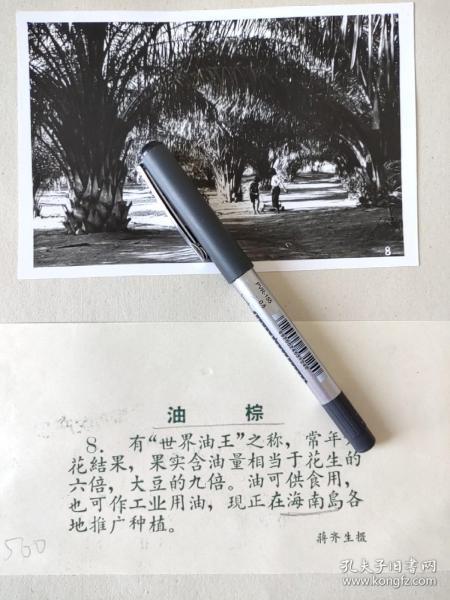 8
PVR-155
0.5
油 棕
8. 有“世界油王”之称，常年
花結果，果实含油量相当于花生的
六倍，大豆的九倍。油可供食用，
也可作工业用油，现正在海南島各
地推广种植。
蒋齐生摄
500
孔夫子旧书网
www.kongfz.com